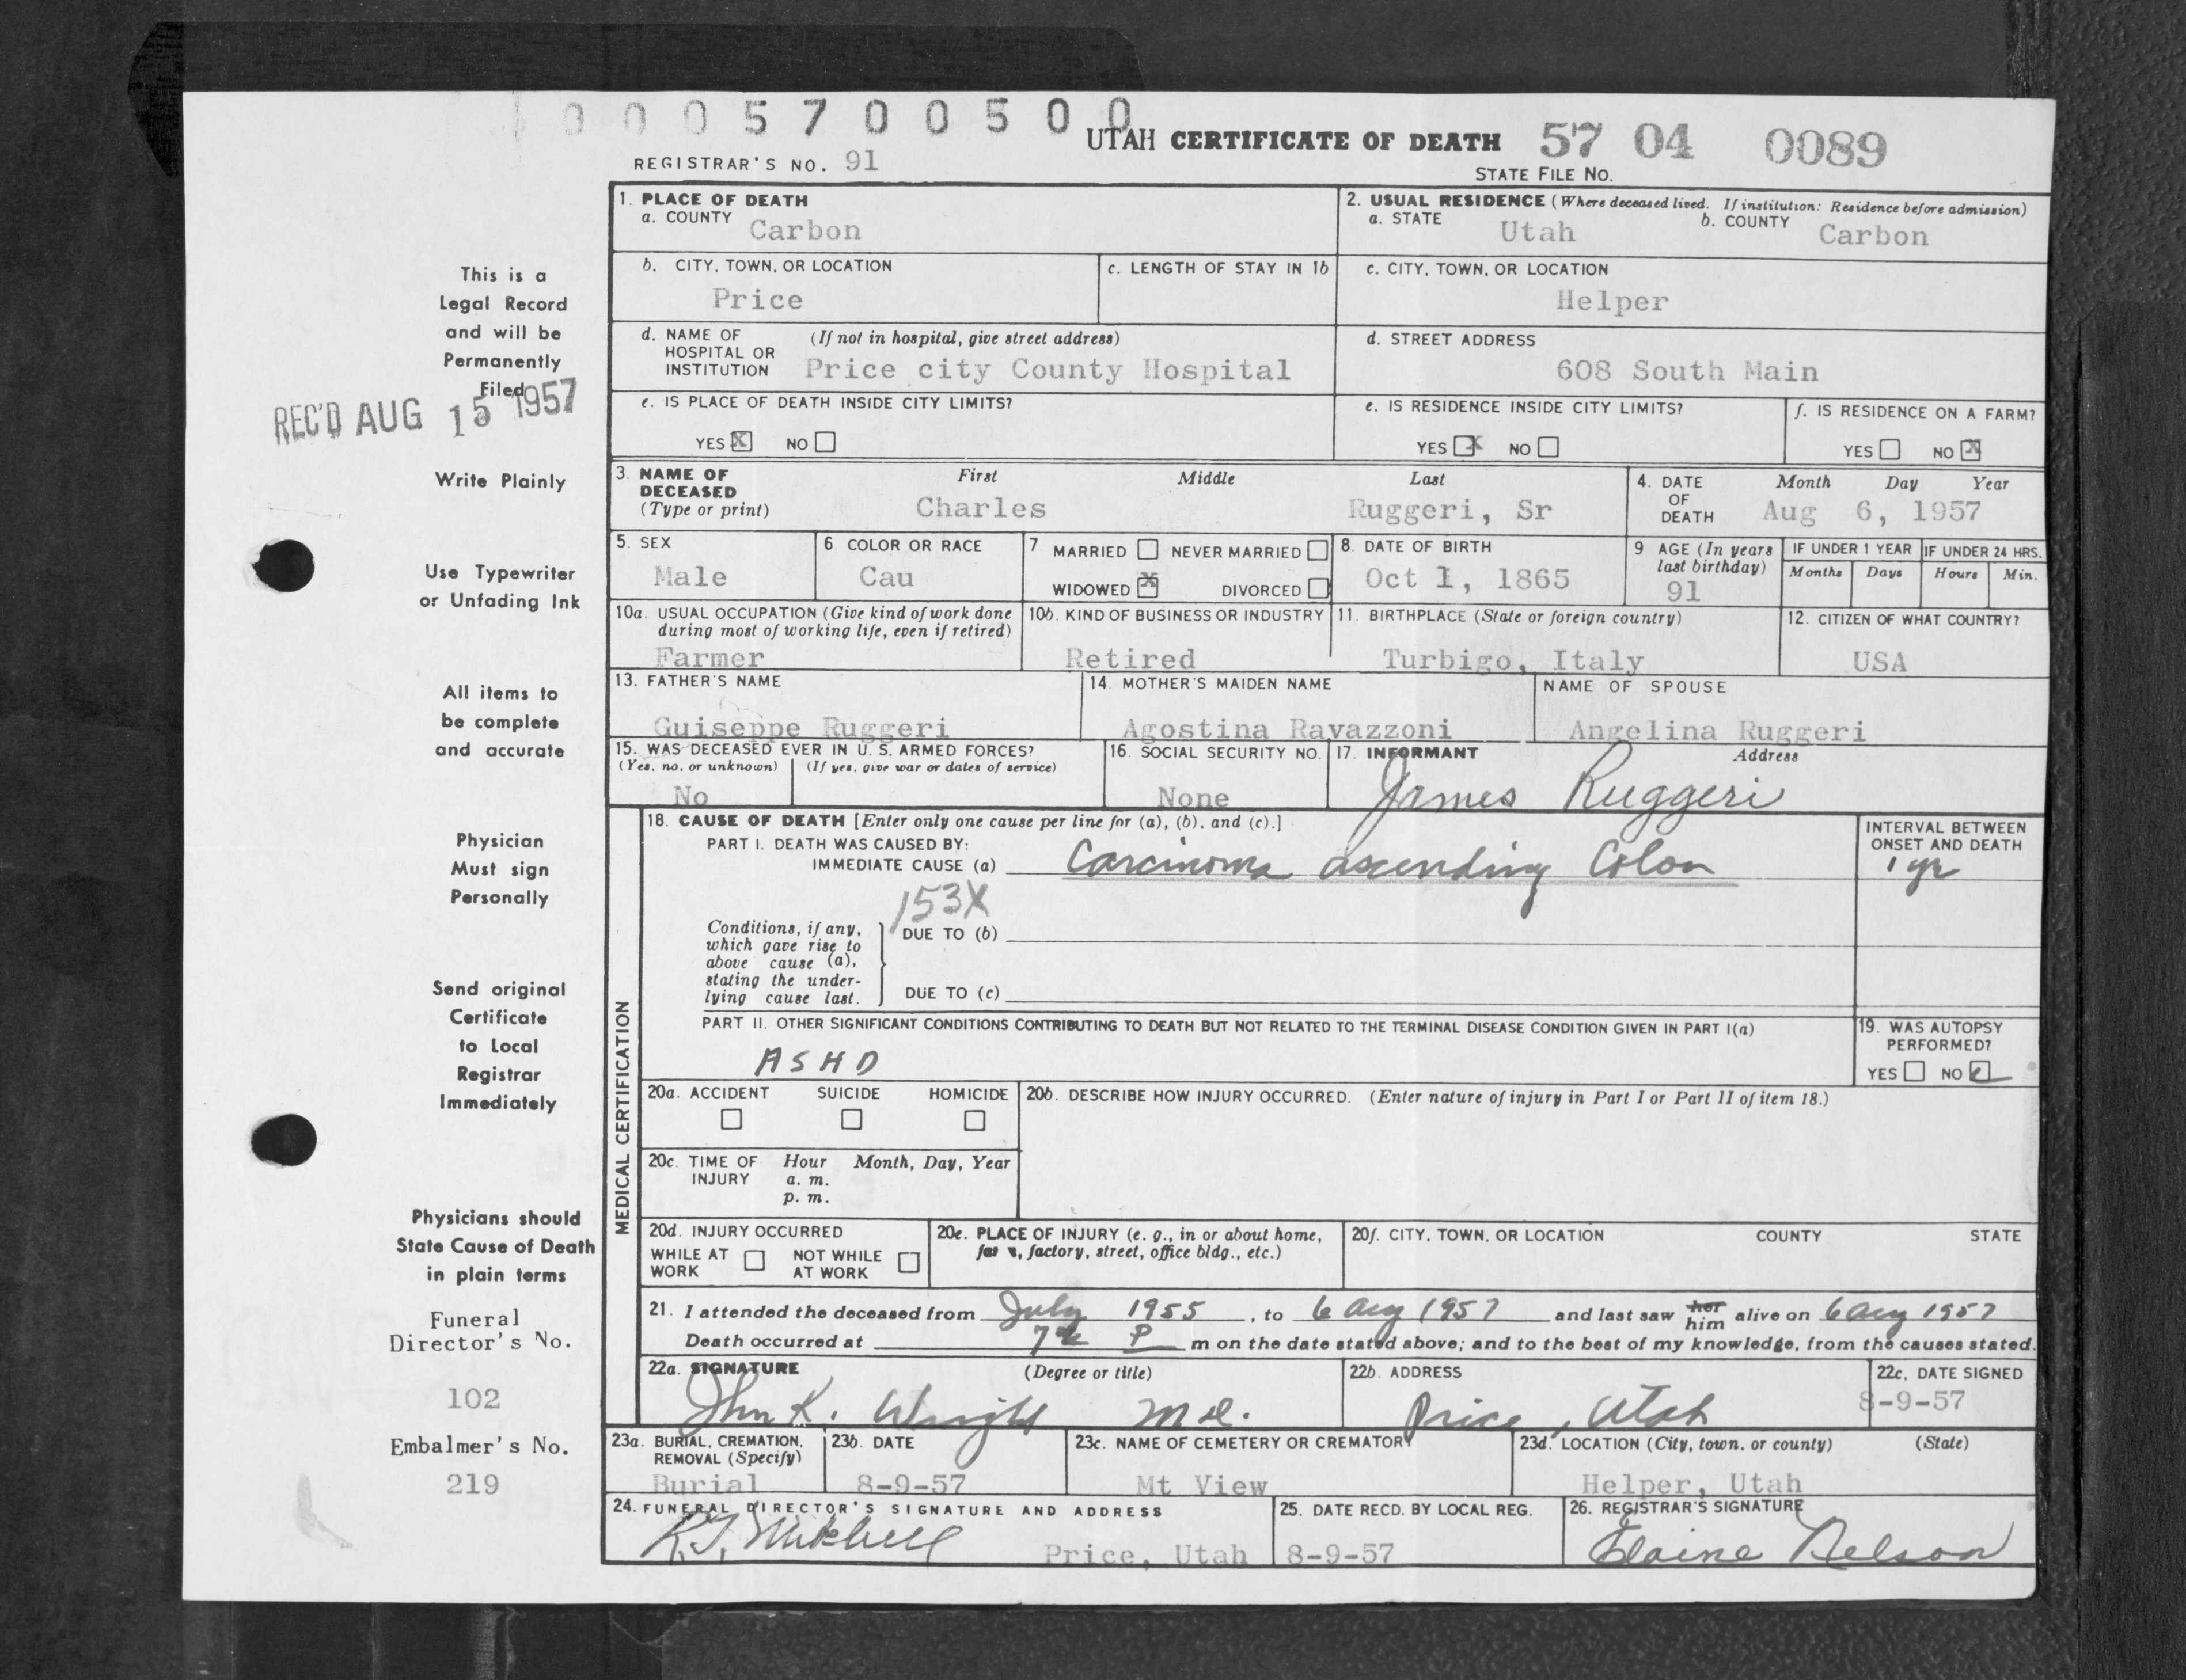 0 0 0 5 7 0 0 5 0 0
UTAH CERTIFICATE OF DEATH 57 04 0089
REGISTRAR'S NO. 91
STATE FILE NO.
1. PLACE OF DEATH
a. COUNTY Carbon
2. USUAL RESIDENCE (Where deceased lived. If institution: Residence before admission)
a. STATE Utah b. COUNTY Carbon
b. CITY, TOWN, OR LOCATION Price
c. LENGTH OF STAY IN 1b
c. CITY, TOWN, OR LOCATION Helper
d. NAME OF HOSPITAL OR INSTITUTION (If not in hospital, give street address)
Price city County Hospital
d. STREET ADDRESS
608 South Main
e. IS PLACE OF DEATH INSIDE CITY LIMITS?
YES X NO
e. IS RESIDENCE INSIDE CITY LIMITS?
YES X NO
f. IS RESIDENCE ON A FARM?
YES NO X
3. NAME OF DECEASED (Type or print)
First Middle Last
Charles Ruggeri, Sr
4. DATE OF DEATH Month Day Year
Aug 6, 1957
5. SEX
Male
6. COLOR OR RACE
Cau
7 MARRIED NEVER MARRIED
WIDOWED X DIVORCED
8. DATE OF BIRTH
Oct 1, 1865
9 AGE (In years last birthday)
91
IF UNDER 1 YEAR
Months Days
IF UNDER 24 HRS.
Hours Min.
10a. USUAL OCCUPATION (Give kind of work done during most of working life, even if retired)
Farmer
10b. KIND OF BUSINESS OR INDUSTRY
Retired
11. BIRTHPLACE (State or foreign country)
Turbigo, Italy
12. CITIZEN OF WHAT COUNTRY?
USA
13. FATHER'S NAME
Guiseppe Ruggeri
14. MOTHER'S MAIDEN NAME
Agostina Ravazzoni
NAME OF SPOUSE
Angelina Ruggeri
15. WAS DECEASED EVER IN U. S. ARMED FORCES?
(Yes, no, or unknown) (If yes, give war or dates of service)
No
16. SOCIAL SECURITY NO.
None
17. INFORMANT Address
James Ruggeri
MEDICAL CERTIFICATION
18. CAUSE OF DEATH [Enter only one cause per line for (a), (b), and (c).]
PART I. DEATH WAS CAUSED BY:
IMMEDIATE CAUSE (a) Carcinoma ascending Colon
INTERVAL BETWEEN ONSET AND DEATH
1 yr
153X
Conditions, if any, which gave rise to above cause (a), stating the underlying cause last.
DUE TO (b)
DUE TO (c)
PART II. OTHER SIGNIFICANT CONDITIONS CONTRIBUTING TO DEATH BUT NOT RELATED TO THE TERMINAL DISEASE CONDITION GIVEN IN PART I(a)
ASHD
19. WAS AUTOPSY PERFORMED?
YES NO
20a. ACCIDENT SUICIDE HOMICIDE
20b. DESCRIBE HOW INJURY OCCURRED. (Enter nature of injury in Part I or Part II of item 18.)
20c. TIME OF INJURY Hour Month, Day, Year
a. m.
p. m.
20d. INJURY OCCURRED
WHILE AT WORK NOT WHILE AT WORK
20e. PLACE OF INJURY (e. g., in or about home, factory, street, office bldg., etc.)
20f. CITY, TOWN, OR LOCATION COUNTY STATE
21. I attended the deceased from July 1955, to 6 Aug 1957 and last saw her him alive on 6 Aug 1957
Death occurred at P m on the date stated above; and to the best of my knowledge, from the causes stated.
22a. SIGNATURE (Degree or title)
John K. Wright M.D.
22b. ADDRESS
Price, Utah
22c. DATE SIGNED
8-9-57
23a. BURIAL, CREMATION, REMOVAL (Specify)
Burial
23b. DATE
8-9-57
23c. NAME OF CEMETERY OR CREMATORY
Mt View
23d. LOCATION (City, town, or county) (State)
Helper, Utah
24. FUNERAL DIRECTOR'S SIGNATURE AND ADDRESS
Mitchell Price, Utah
25. DATE RECD. BY LOCAL REG.
8-9-57
26. REGISTRAR'S SIGNATURE
Elaine Nelson
This is a
Legal Record
and will be
Permanently
Filed
REC'D AUG 15 1957
Write Plainly
Use Typewriter
or Unfading Ink
All items to
be complete
and accurate
Physician
Must sign
Personally
Send original
Certificate
to Local
Registrar
Immediately
Physicians should
State Cause of Death
in plain terms
Funeral
Director's No.
102
Embalmer's No.
219